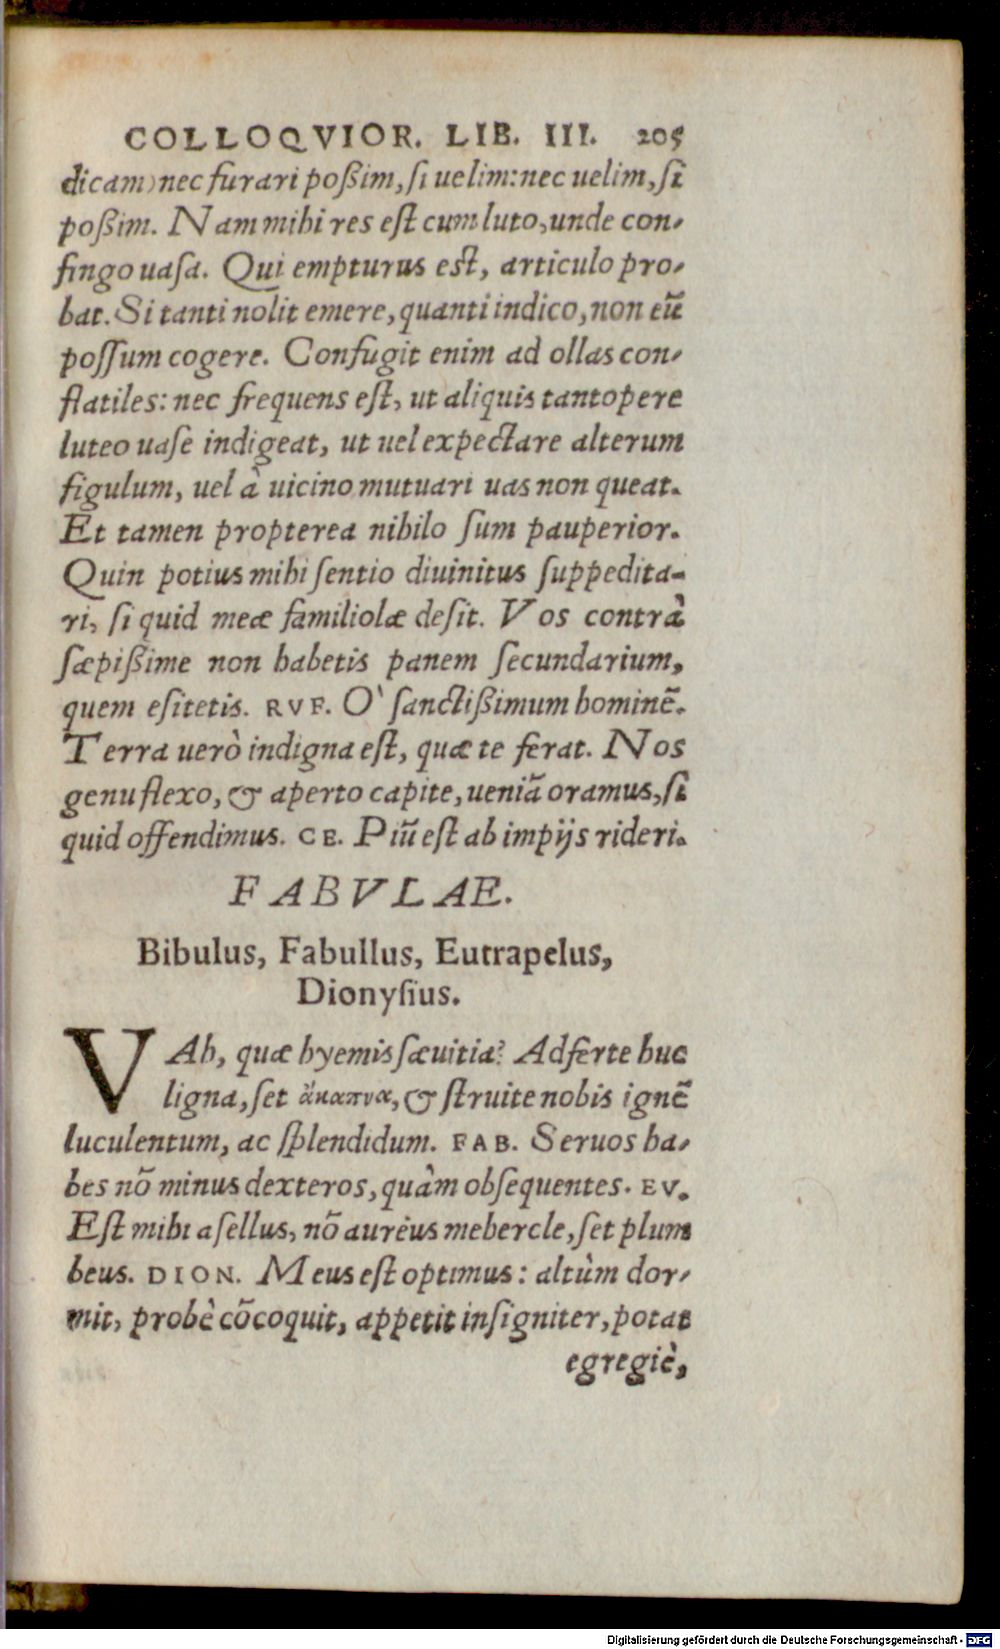 COLLOQVIOR. LIB. III. 205
dicam) nec furari poßim, ſi uelim: nec uelim, ſi
poßim. Nam mihi res eſt cum luto, unde con-
fingo uaſa. Qui empturus eſt, articulo pro-
bat. Si tanti nolit emere, quanti indico, non eũ
poſſum cogere. Confugit enim ad ollas con-
flatiles: nec frequens eſt, ut aliquis tantopere
luteo uaſe indigeat, ut uel expectare alterum
figulum, uel à uicino mutuari uas non queat.
Et tamen propterea nihilo ſum pauperior.
Quin potius mihi ſentio diuinitus ſuppedita-
ri, ſi quid meæ familiolæ deſit. Vos contrà
ſæpißime non habetis panem ſecundarium,
quem eſitetis. RVF. O` ſanctißimum hominẽ.
Terra uerò indigna eſt, quæ te ferat. Nos
genu flexo, & aperto capite, ueniã oramus, ſi
quid offendimus. CE. Piũ eſt ab impijs rideri.
FABVLAE.
Bibulus, Fabullus, Eutrapelus,
Dionyſius.
VAh, quæ hyemis ſæuitia? Adferte huc
ligna, ſet ἄκαπνα, & ſtruite nobis ignẽ
luculentum, ac ſplendidum. FAB. Seruos ha-
bes nõ minus dexteros, quàm obſequentes. EV.
Eſt mihi aſellus, nõ aureus mehercle, ſet plum
beus. DION. Meus eſt optimus: altùm dor-
mit, probè cõcoquit, appetit inſigniter, potat
egregiè,
Digitalisierung gefördert durch die Deutsche Forschungsgemeinschaft - DFG